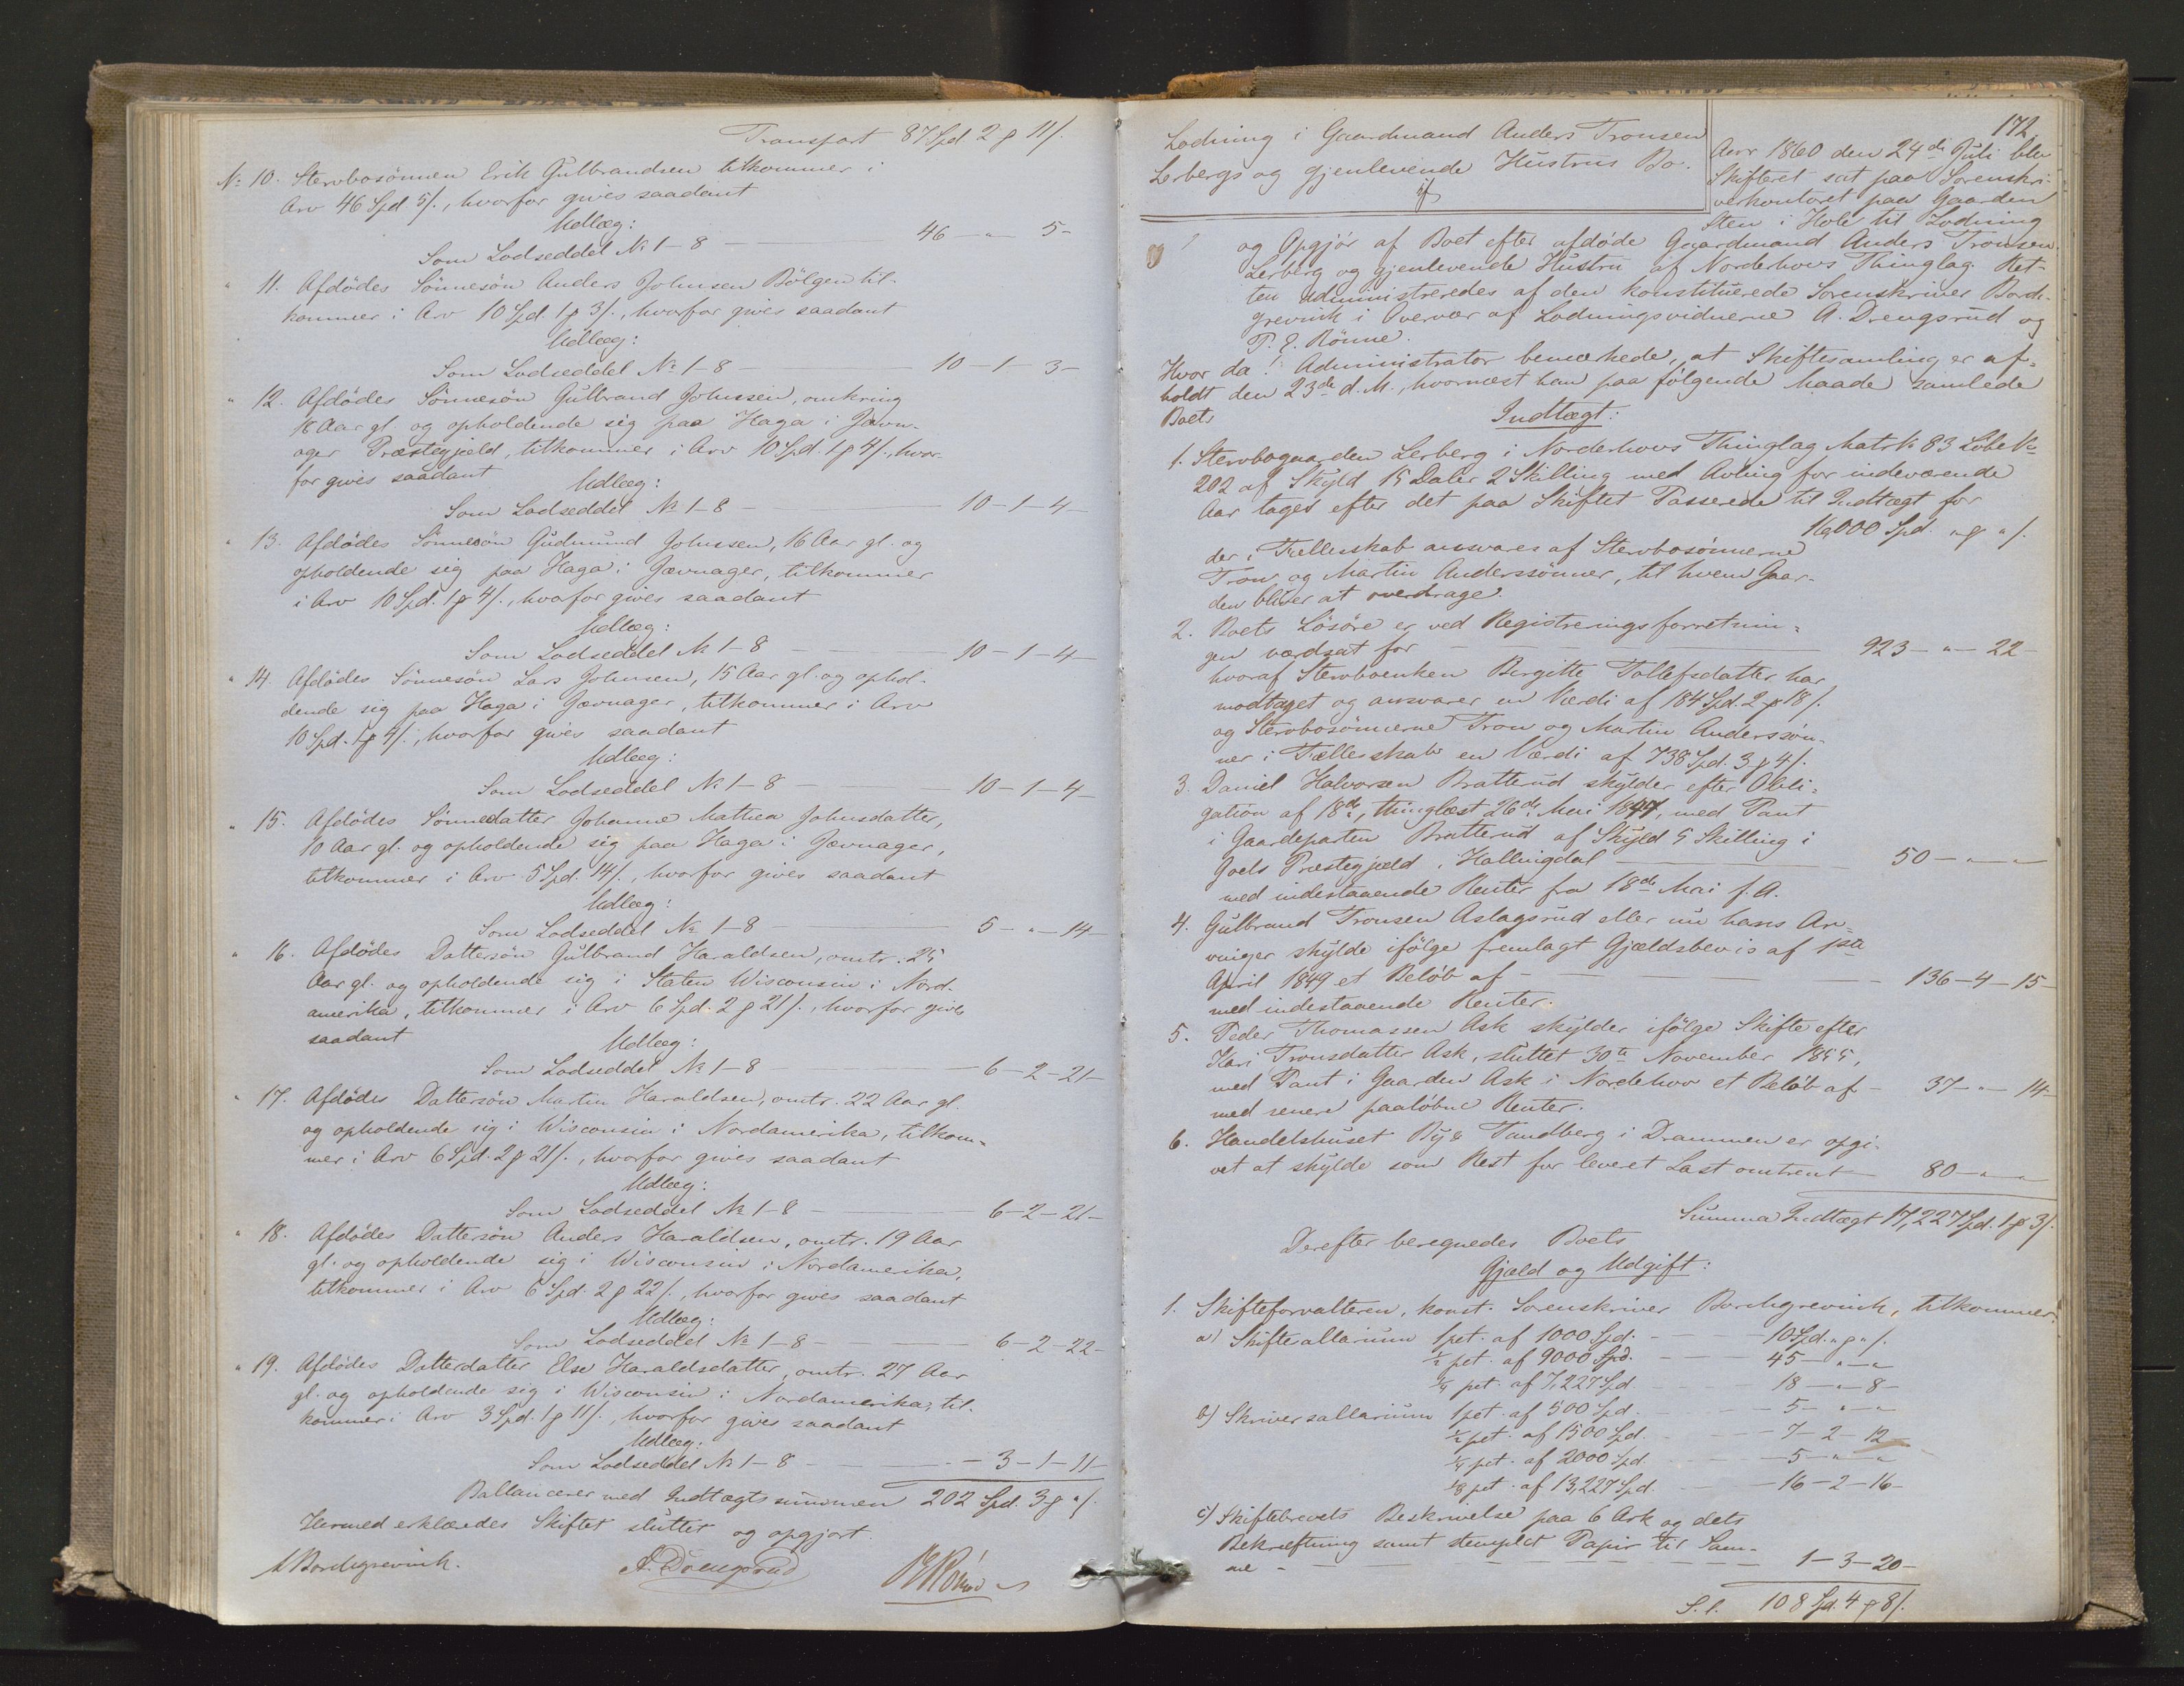 Transport 87 Spd. 2 ƒ 11 /.
No 10. Stervbosönnen Erik Gulbrandsen tilkommer i
Arv 46 Spd. 5/., hvorfor gives saadant
Udlæg:
Som Lodseddel No 1-8 — 46 — " — 5 -
" 11. Afdödes Sönnesön Anders Johnsen Bölgen til-
kommer i Arv 10 Spd. 1 ƒ 3/., hvorfor gives saadant
Udlæg:
Som Lodseddel No 1-8 — 10 - 1 - 3 -
" 12. Afdödes Sönnesön Gulbrand Johnsen, omkring
18 Aar gl. og opholdende sig paa Haga i Jævn-
ager Præstegjeld, tilkommer i Arv 10 Spd. 1 ƒ 4/., hvor-
for gives saadant
Udlæg:
Som Lodseddel No 1-8 — 10 - 1 - 4 -
" 13. Afdödes Sönnesön Gudmund Johnsen, 16 Aar gl. og
opholdende sig paa Haga i Jævnager, tilkommer
i Arv 10 Spd. 1 ƒ 4/., hvorfor gives saadant
Udlæg:
Som Lodseddel No 1-8 — 10 - 1 - 4 -
" 14. Afdödes Sönnesön Lars Johnsen, 15 Aar gl. og ophol-
dende sig paa Haga i Jævnager, tilkommer i Arv
10 Spd. 1 ƒ 4/., hvorfor gives saadant
Udlæg:
Som Lodseddel No 1-8 — 10 - 1 - 4 -
" 15. Afdödes Sönnedatter Johanne Mathea Johnsdatter,
10 Aar gl. og opholdende sig paa Haga i Jævnager,
tilkommer i Arv 5 Spd. 14/., hvorfor gives saadant
Udlæg:
Som Lodseddel No 1-8 — 5 - " - 14 -
" 16. Afdödes Dattersön Gulbrand Haraldsen, omtr. 25
Aar gl. og opholdende sig i Staten Wisconsin i Nord-
amerika, tilkommer i Arv 6 Spd. 2 ƒ 21/., hvorfor gives
saadant
Udlæg:
Som Lodseddel No 1-8 — 6 - 2 - 21 -
" 17. Afdödes Dattersön Martin Haraldsen, omtr. 22 Aar gl.
og opholdende sig i Wisconsin i Nordamerika, tilkom-
mer i Arv 6 Spd. 2 ƒ 21/., hvorfor gives saadant
Udlæg:
Som Lodseddel No 1-8 — 6 - 2 - 21 -
" 18. Afdödes Dattersön Anders Haraldsen, omtr. 19 Aar
gl. og opholdende sig i Wisconsin i Nordamerika,
tilkommer i Arv 6 Spd. 2 ƒ 22/., hvorfor gives saadant
Udlæg:
Som Lodseddel No 1-8 — 6 - 2 - 22 -
" 19. Afdödes Datterdatter Else Haraldsdatter, omtr. 27 Aar
gl. og opholdende sig i Wisconsin i Nordamerika, til-
kommer i Arv 3 Spd. 1 ƒ 11/., hvorfor gives saadant
Udlæg:
Som Lodseddel No 1-8 — 3 - 1 - 11 -
Ballancerer med Indtægtssummen 202 Spd. 3 ƒ " /.
Hermed erklæredes Skiftet sluttet og opgjort.
Borchgrevink. A. Drengsrud Rönne
172.
Lodning i Gaardmand Anders Tronsen
Lerbergs og gjenlevende Hustrus Bo.
Aar 1860 den 24de Juli blev
Skifteret sat paa Sorenskri-
verkontoret paa Gaarden
Sten i Hole til Lodning
og Opgjör af Boet efter afdöde Gaardmand Anders Tronsen
Lerberg og gjenlevende Hustru af Norderhovs Thinglag. Ret-
ten administreredes af den konstituerede Sorenskriver Borch-
grevink i Overvær af Lodningsvidnerne A. Drengsrud og
P. E. Rönne.
Hvor da: Administrator bemærkede, at Skiftesamling er af-
holdt den 23de d. M., hvornæst han paa fölgende Maade samlede
Boets
Indtægt:
1. Stervbogaarden Lerberg i Norderhovs Thinglag Matr. No 83 Löbe No
202 af Skyld 15 Daler 2 Skilling med Avling for indeværende
Aar tages efter det paa Skiftet Passerede til Indtægt for
16,000 Spd. " ƒ " /.
der i Fællesskab ansvares af Stervbosönnerne
Tron og Martin Anderssönner, til hvem Gaar-
den bliver at overdrage.
2. Boets Lösöre er ved Registreringsforretnin-
gen værdsat for — 923 - " - 22 -
hvoraf Stervboenken Birgitte Tollefsdatter har
modtaget og ansvarer en Værdi af 184 Spd. 2 ƒ 18/.
og Stervbosönnerne Tron og Martin Anderssön-
ner i Fællesskab en Værdi af 738 Spd. 3 ƒ 4/.
3. Daniel Halvorsen Bratterud skylder efter Obli-
gation af 18de, thinglæst 26de Mai 1847, med Pant
i Gaardeparten Bratterud af Skyld 5 Skilling i
Goels Præstegjæld i Hallingdal — 50 - " - "
med indestaaende Renter fra 18de Mai f. A.
4. Gulbrand Tronsen Aslagsrud eller nu hans Ar-
vinger skylde ifölge fremlagt Gjældsbevis af 1ste
April 1849 et Belöb af — 136 - 4 - 15 -
med indestaaende Renter.
5. Peder Thomassen Ask skylder ifölge Skifte efter
Kari Tronsdatter Ask, sluttet 30te November 1855,
med Pant i Gaarden Ask i Norderhov et Belöb af - 37 - " - 14 -
med senere paalöbne Renter.
6. Handelshuset By & Tandberg i Drammen er opgi-
vet at skylde som Rest for leveret Last omtrent — 80 - " - "
Summa Indtægt 17,227 Spd. 1 ƒ 3/.
Derefter beregnedes Boets
Gjæld og Udgift:
1. Skifteforvalteren, konst. Sorenskriver Borchgrevink, tilkommer:
a) Skiftesallarium 1 pct. af 1000 Spd. — 10 Spd. " ƒ " /.
½ pct. af 9000 Spd. — 45 - " - "
¼ pct. af 7,227 Spd. — 18 - " - 8 -
b) Skriversallarium 1 pct. af 500 Spd. — 5 - " - "
½ pct. af 1500 Spd. — 7 - 2 - 12
¼ pct. af 2000 Spd. — 5 - " - "
⅛ pct. af 13,227 Spd. — 16 - 2 - 16 -
c) Skiftebrevets Beskrivelse paa 6 Ark og dets
Bekræftning samt stemplet Papir til Sam-
me — 1 - 3 - 20 -
S. l. 108 Spd. 4 ƒ 8/.